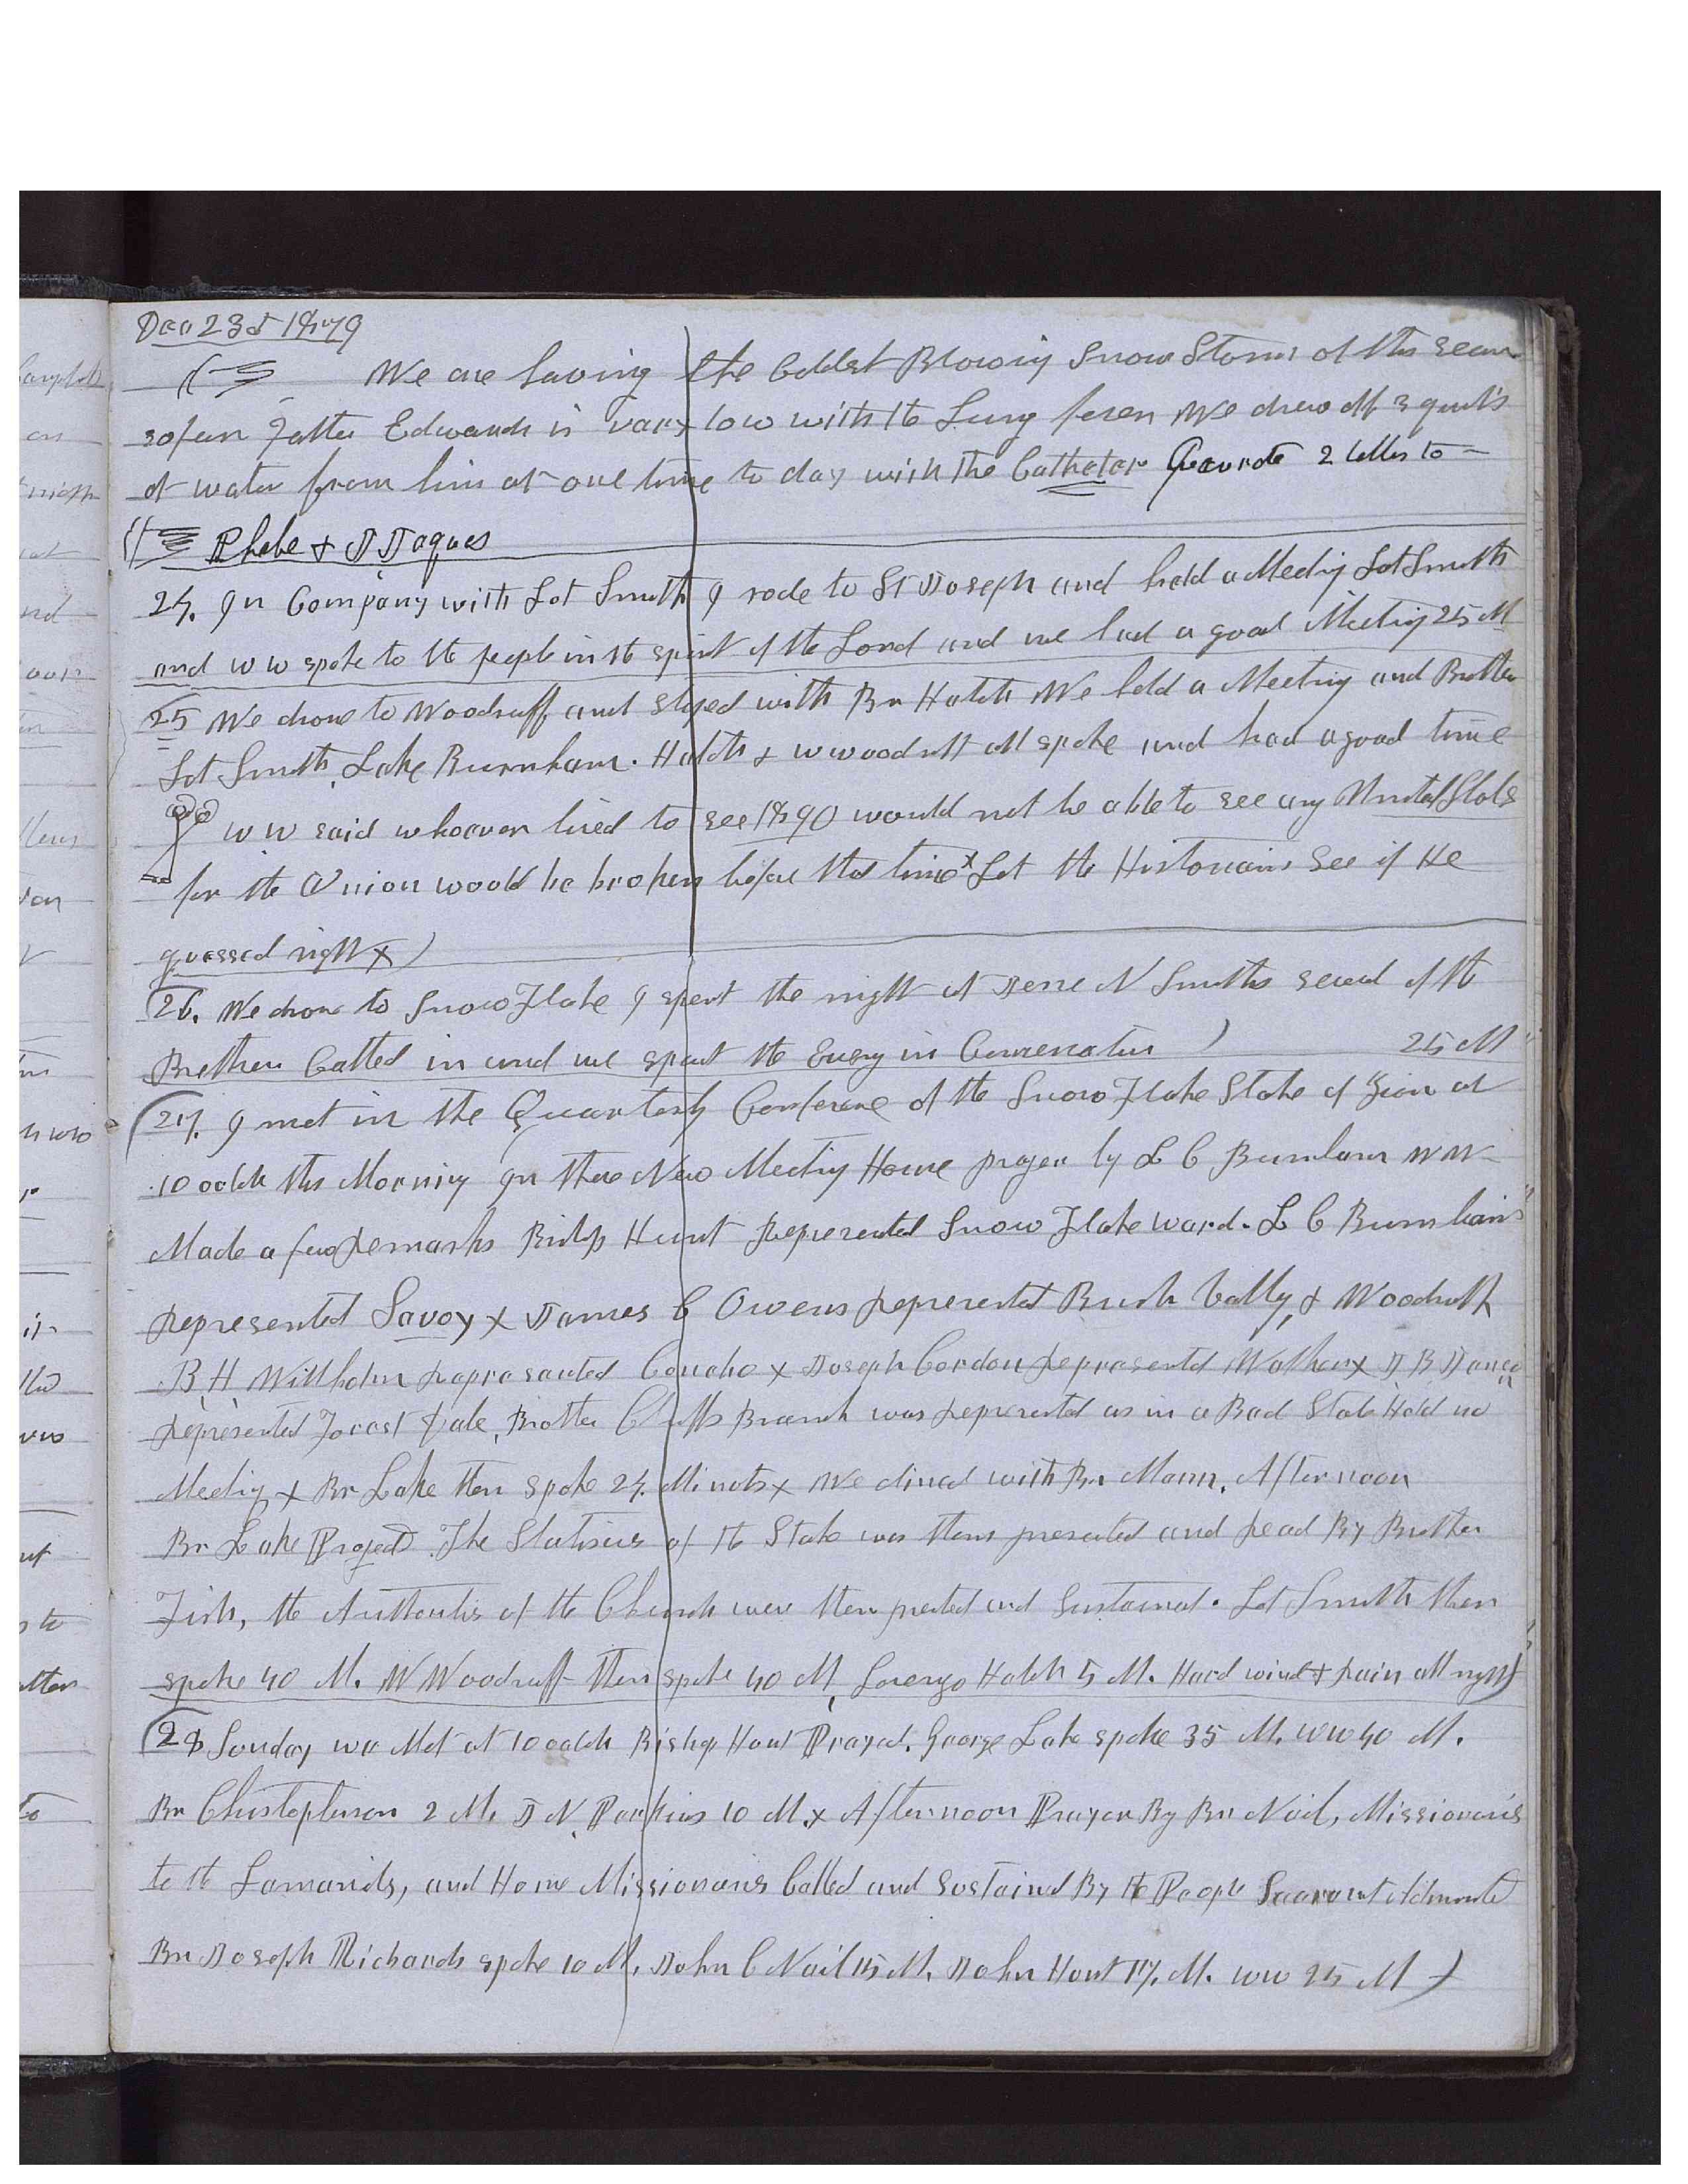 Dec 23d 1879
We are having the Coldest Blowing Snow Storm of the season
sofar Father Edwards is vary low with the Lung fever We drew off 3 quarts
of water from him at one time to day with the Cathater I wrote 2 letters to
Phebe & J Jaques
24. In Company with Lot Smith I rode to St Joseph and held a Meeting Lot Smith
and W W spoke to the people in the spirit of the Lord and we had a good Meeting 25 M
25 We drove to Woodruff and stayed with Br Hatch We held a Meeting and Brother
Lot Smith, Lake Burnham. Hatch & W Woodruff all spoke and had a good time
W W said whoever lived to see 1890 would not be able to see any United States
for the Union would be broken before that time x Let the Historians See if He
guessed right x)
26. We drove to Snow Flake I spent the night at Jesse N Smiths several of the
Brethren Called in and we spent the Evening in Conversation) 25 M
27. I met in the Quarterly Conference of the Snow Flake Stake of Zion at
10 oclok this Morning In there New Meeting House prayer by L C Burnham W W
Made a few remarks Bishop Hunt Represented Snow Flake Ward. L C Burnham
represented Savoy x James C Owens represented Brush Vally, & Woodruff
B H Willhelm represented Concho x Joseph Cordon represented Walker x J B James
represented Forest Dale, Brother Cluffs Branch was represented as in a Bad State Held no
Meeting x Br Lake then spoke 24 Minutes x We dined with Br Mann, Afternoon
Br Lake Prayed. The Statistics of the Stake was then presented and read By Brother
Fish, the Authorities of the Church were then presented and Sustained. Lot Smith then
spoke 40 M. W Woodruff then spoke 40 M, Lorenzo Hatch 5 M. Hard wind & rain all night)
28 Sunday we Met at 10 oclok Bishop Hunt Prayed. George Lake spoke 35 M. W W 40 M.
Br Christopherson 2 M. J N Perkins 10 M. x Afternoon Prayer By Br Nail, Missionaries
to the Lamanits, and Home Missionaries Called and Sustained By the People Sacrament Administered
Br Joseph Richards spoke 10 M, John C Nail 15 M, John Hunt 17 M. W W 25 M )